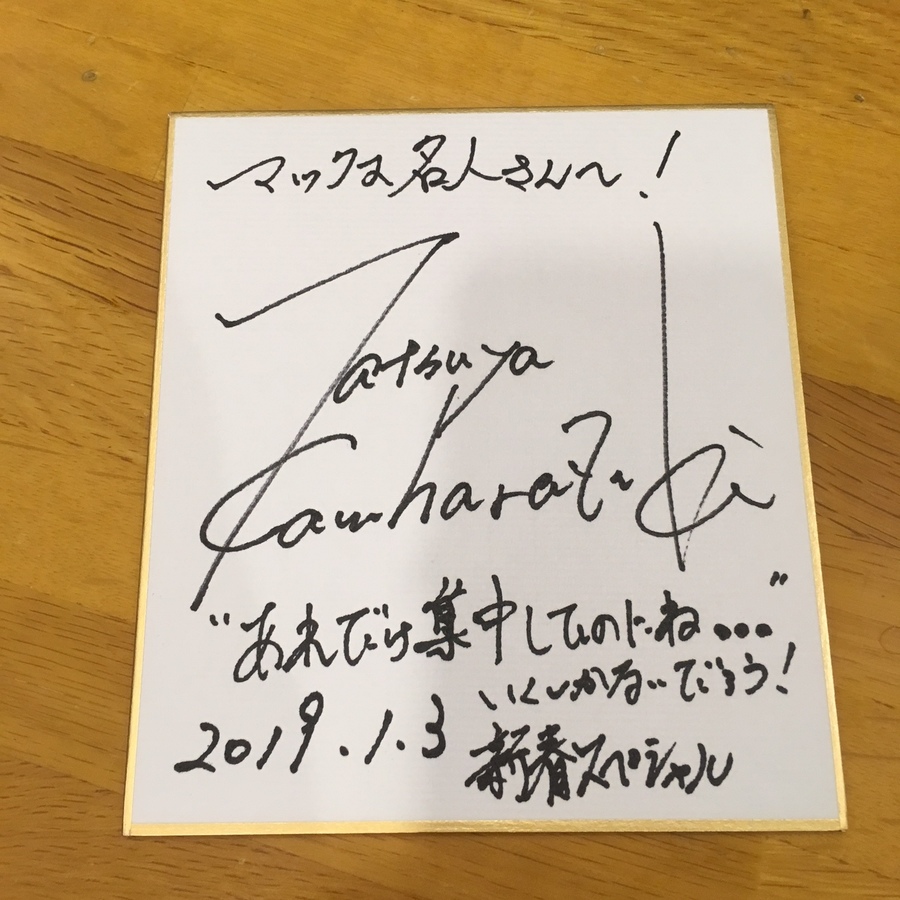 マックス名人さんへ!
Tatsuya
Kawharazuki
"あれだけ集中してたのにね..."
いくしかないだろう!
2019.1.3
新春スペシャル